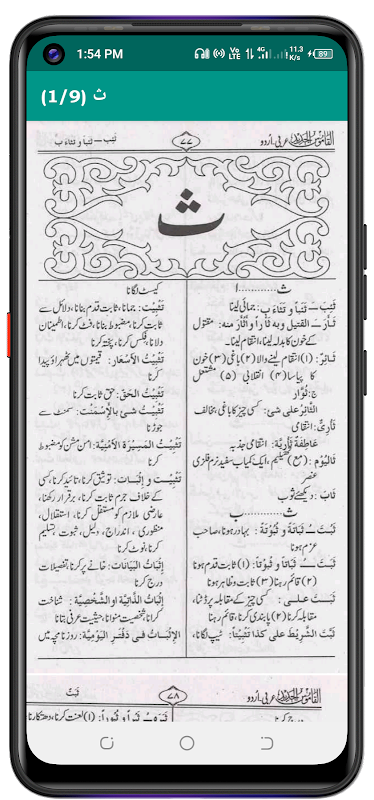 1:54 PM
Vo LTE
4G
11.3 K/s
89
ث (1/9)
القاموس الجدید عربی۔اردو
۷۷
ثَئِبَ — ثَأَباً و تَثَاءَبَ
ث
ث.............ا
ثَئِبَ — ثَأَباً و تَثَاءَبَ: جمائی لینا
ثَأَرَ — القتیل و به ثَأْراً و أثْأَرَ منه: مقتول
کے خون کا بدلہ لینا، انتقام لینا۔
ثَائِرٌ: (۱) انتقام لینے والا (۲) باغی (۳) خون
کا پیاسا (۴) انقلابی (۵) مشتعل
ج: ثُوَّار
الثَّائِرُ علی شئ: کسی چیز کا باغی، مخالف
ثَأْرِیٌّ: انتقامی
عَاطِفَةٌ ثَأْرِیَّةٌ: انتقامی جذبہ
ثَالِیُوم: (مع) تھیلیم، ایک کمیاب سفید نرم فلزی
عنصر
ثَابَ: دیکھئے ثوب
ث.............ب
ثَبُتَ ثَبَاتَةً و ثُبُوْتَةً: بہادر ہونا، صاحب
عزم ہونا
ثَبَتَ — ثَبَاتاً و ثُبُوْتاً: (۱) ثابت قدم ہونا
(۲) قائم رہنا (۳) ثابت و ظاہر ہونا
ثَبَتَ علی: کسی چیز کے مقابلہ پر ڈٹنا،
مقابلہ کرنا (۲) پابندی کرنا، قائم رہنا
ثَبَّتَ الشَّرِیْطَ علی کذا تَثْبِیْتاً: ٹیپ لگانا،
کیسٹ لگانا
تَثْبِیْتٌ: جمانا، ثابت قدم بنانا، دلائل سے
ثابت کرنا، مضبوط بنانا، فٹ کرنا، اطمینان
دلانا، فکس کرنا، پختہ کرنا
تَثْبِیْتُ الأَسْعَارِ: قیمتوں میں ٹھہراؤ پیدا
کرنا
تَثْبِیْتُ الحَقِّ: حق ثابت کرنا
تَثْبِیْتُ شیْ بِالإِسْمَنْتِ: سمنٹ سے
جوڑنا
تَثْبِیْتُ المَسِیْرَةِ الأَمْنِیَّةِ: امن مشن کو مضبوط
کرنا
تَثْبِیْت و إِثْبَات: توثیق کرنا، تائید کرنا، کسی
کے خلاف جرم ثابت کرنا، برقرار رکھنا،
عارضی ملازم کو مستقل کرنا، استقلال،
منظوری، اندراج، دلیل، ثبوت، تسلیم
کرنا، نوٹ کرنا
إِثْبَاتُ البَیَانَاتِ: خانے پر کرنا، تفصیلات
درج کرنا
إِثْبَاتُ الذَّاتِیَّةِ او الشَّخْصِیَّةِ: شناخت
کرنا، شخصیت منوانا، حیثیت عرفی بتانا
الإِثْبَاتُ فِی دَفْتَرِ الیَوْمِیَّةِ: روزنامچہ میں
القاموس الجدید عربی۔اردو
۷۸
ثَبَتَ
درج کرنا
(۱) لعنت کرنا، دھتکارنا